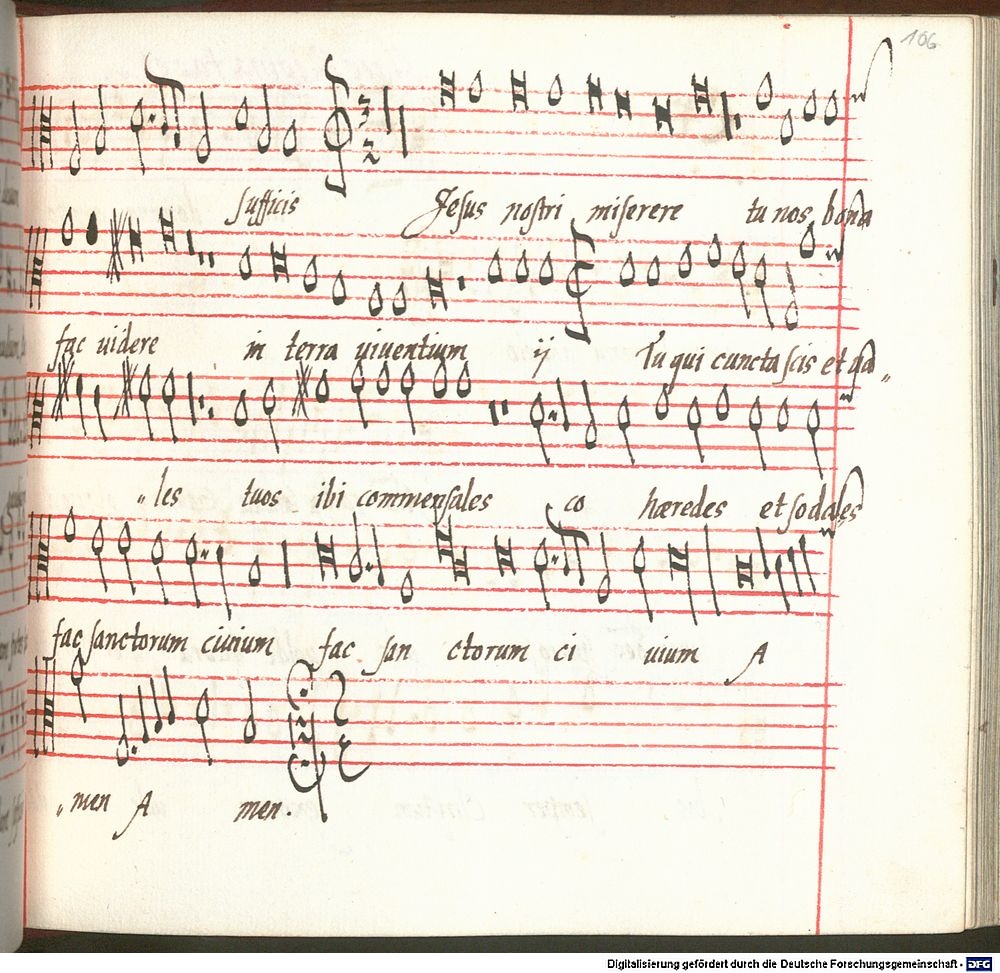 106
sufficis Jesus nostri miserere tu nos bona
fac uidere in terra uiuentium ij Tu qui cuncta scis et ua„
„les tuos ibi commensales co hæredes et sodales
fac sanctorum ciuium fac san ctorum ci uium A
„men A men.
Digitalisierung gefördert durch die Deutsche Forschungsgemeinschaft - DFG